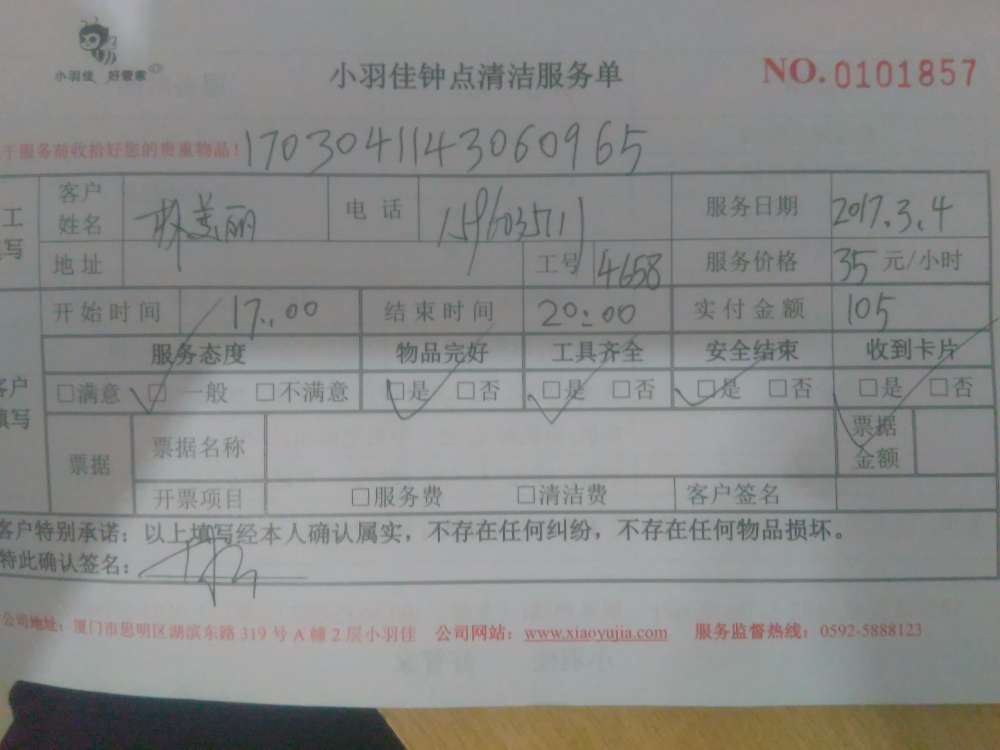 小羽佳 好管家
小羽佳钟点清洁服务单
NO.0101857
于服务前收拾好您的贵重物品！
1703041143060965
工 写
客户姓名 林美丽 电话 服务日期 2017.3.4
地址 工号 4658 服务价格 35 元/小时
开始时间 17:00 结束时间 20:00 实付金额 105
客户 填写
服务态度 物品完好 工具齐全 安全结束 收到卡片
□满意 □一般 □不满意 □是 □否 □是 □否 □是 □否 □是 □否
票据 票据名称 票据金额
开票项目 □服务费 □清洁费 客户签名
客户特别承诺：以上填写经本人确认属实，不存在任何纠纷，不存在任何物品损坏。
特此确认签名：
公司地址：厦门市思明区湖滨东路 319 号 A 幢 2 层小羽佳 公司网站：www.xiaoyujia.com 服务监督热线：0592-5888123